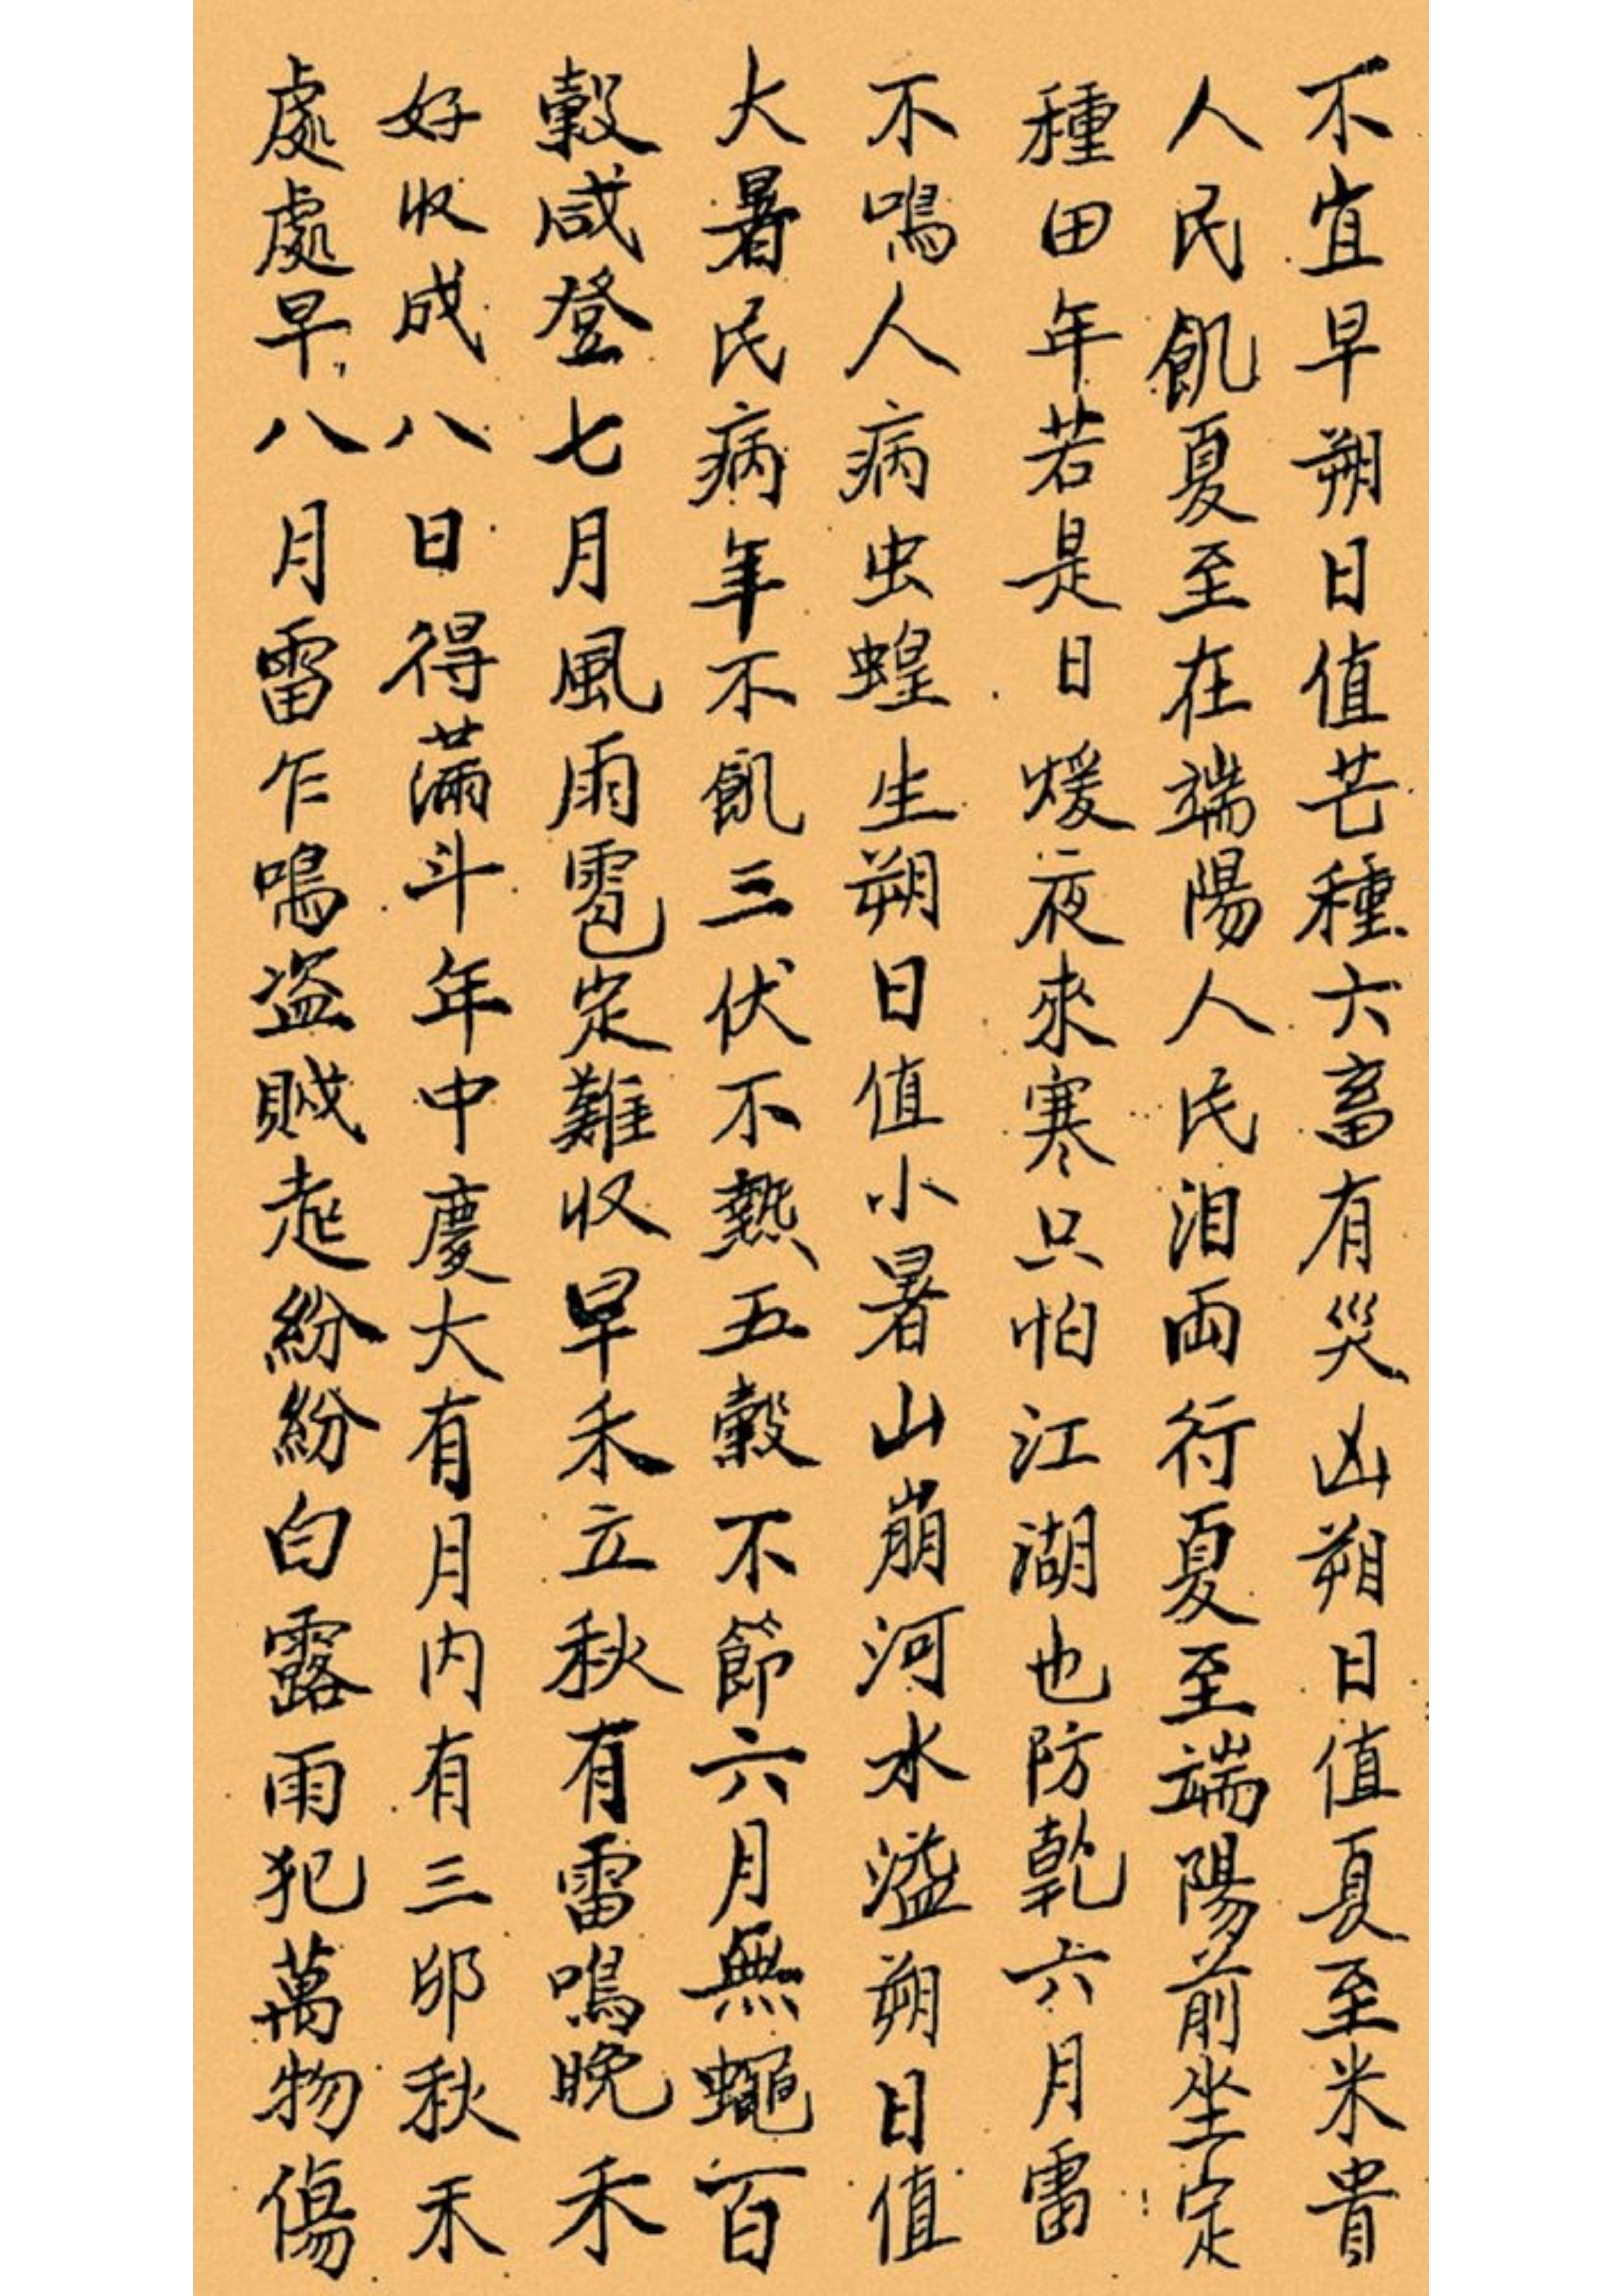 不宜早朔日值芒種六畜有災凶朔日值夏至米貴
人民飢夏至在端陽人民泪両行夏至端陽前坐定
種田年若是日煖夜來寒只怕江湖也防乾六月雷
不鳴人病虫蝗生朔日值小暑山崩河水溢朔日值
大暑民病年不飢三伏不熱五穀不節六月無蠅百
穀咸登七月風雨雹定難收早禾立秋有雷鳴晚禾
好收成八日得滿斗年中慶大有月内有三卯秋禾
處處早八月雷乍鳴盗賊走紛紛白露雨犯萬物傷